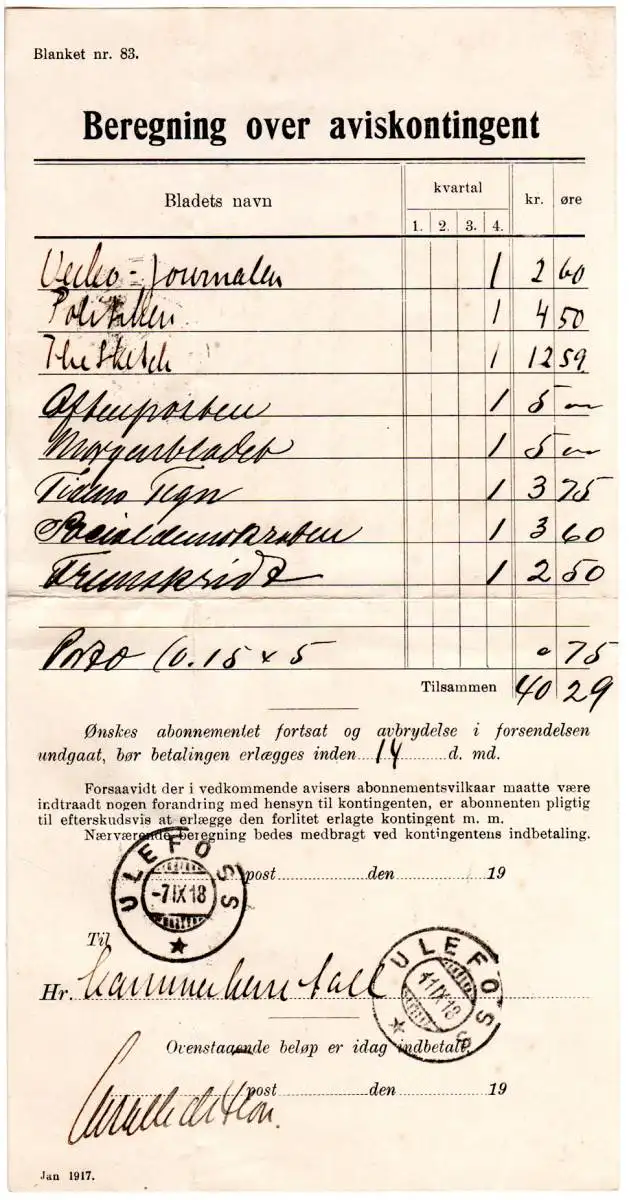 Blanket nr. 83.
Beregning over aviskontingent
Bladets navn kvartal kr. øre
1. 2. 3. 4.
Uke-Journalen 1 2 60
Politiken 1 4 50
The Sketch 1 12 59
Aftenposten 1 5 „
Morgenbladet 1 5 „
Tidens Tegn 1 3 75
Socialdemokraten 1 3 60
Fremskridt 1 2 50
Porto (0.15 x 5 " 75
Tilsammen 40 29
Ønskes abonnementet fortsat og avbrydelse i forsendelsen
undgaat, bør betalingen erlægges inden 14 d. md.
Forsaavidt der i vedkommende avisers abonnementsvilkaar maatte være
indtraadt nogen forandring med hensyn til kontingenten, er abonnenten pligtig
til efterskudsvis at erlægge den forlitet erlagte kontingent m. m.
Nærværende beregning bedes medbragt ved kontingentens indbetaling.
ULEFOSS -7IX18
post den 19
Til
Hr. Kammerherre Aall
ULEFOSS 11IX18
Ovenstaaende beløp er idag indbetalt.
post den 19
Jan 1917.